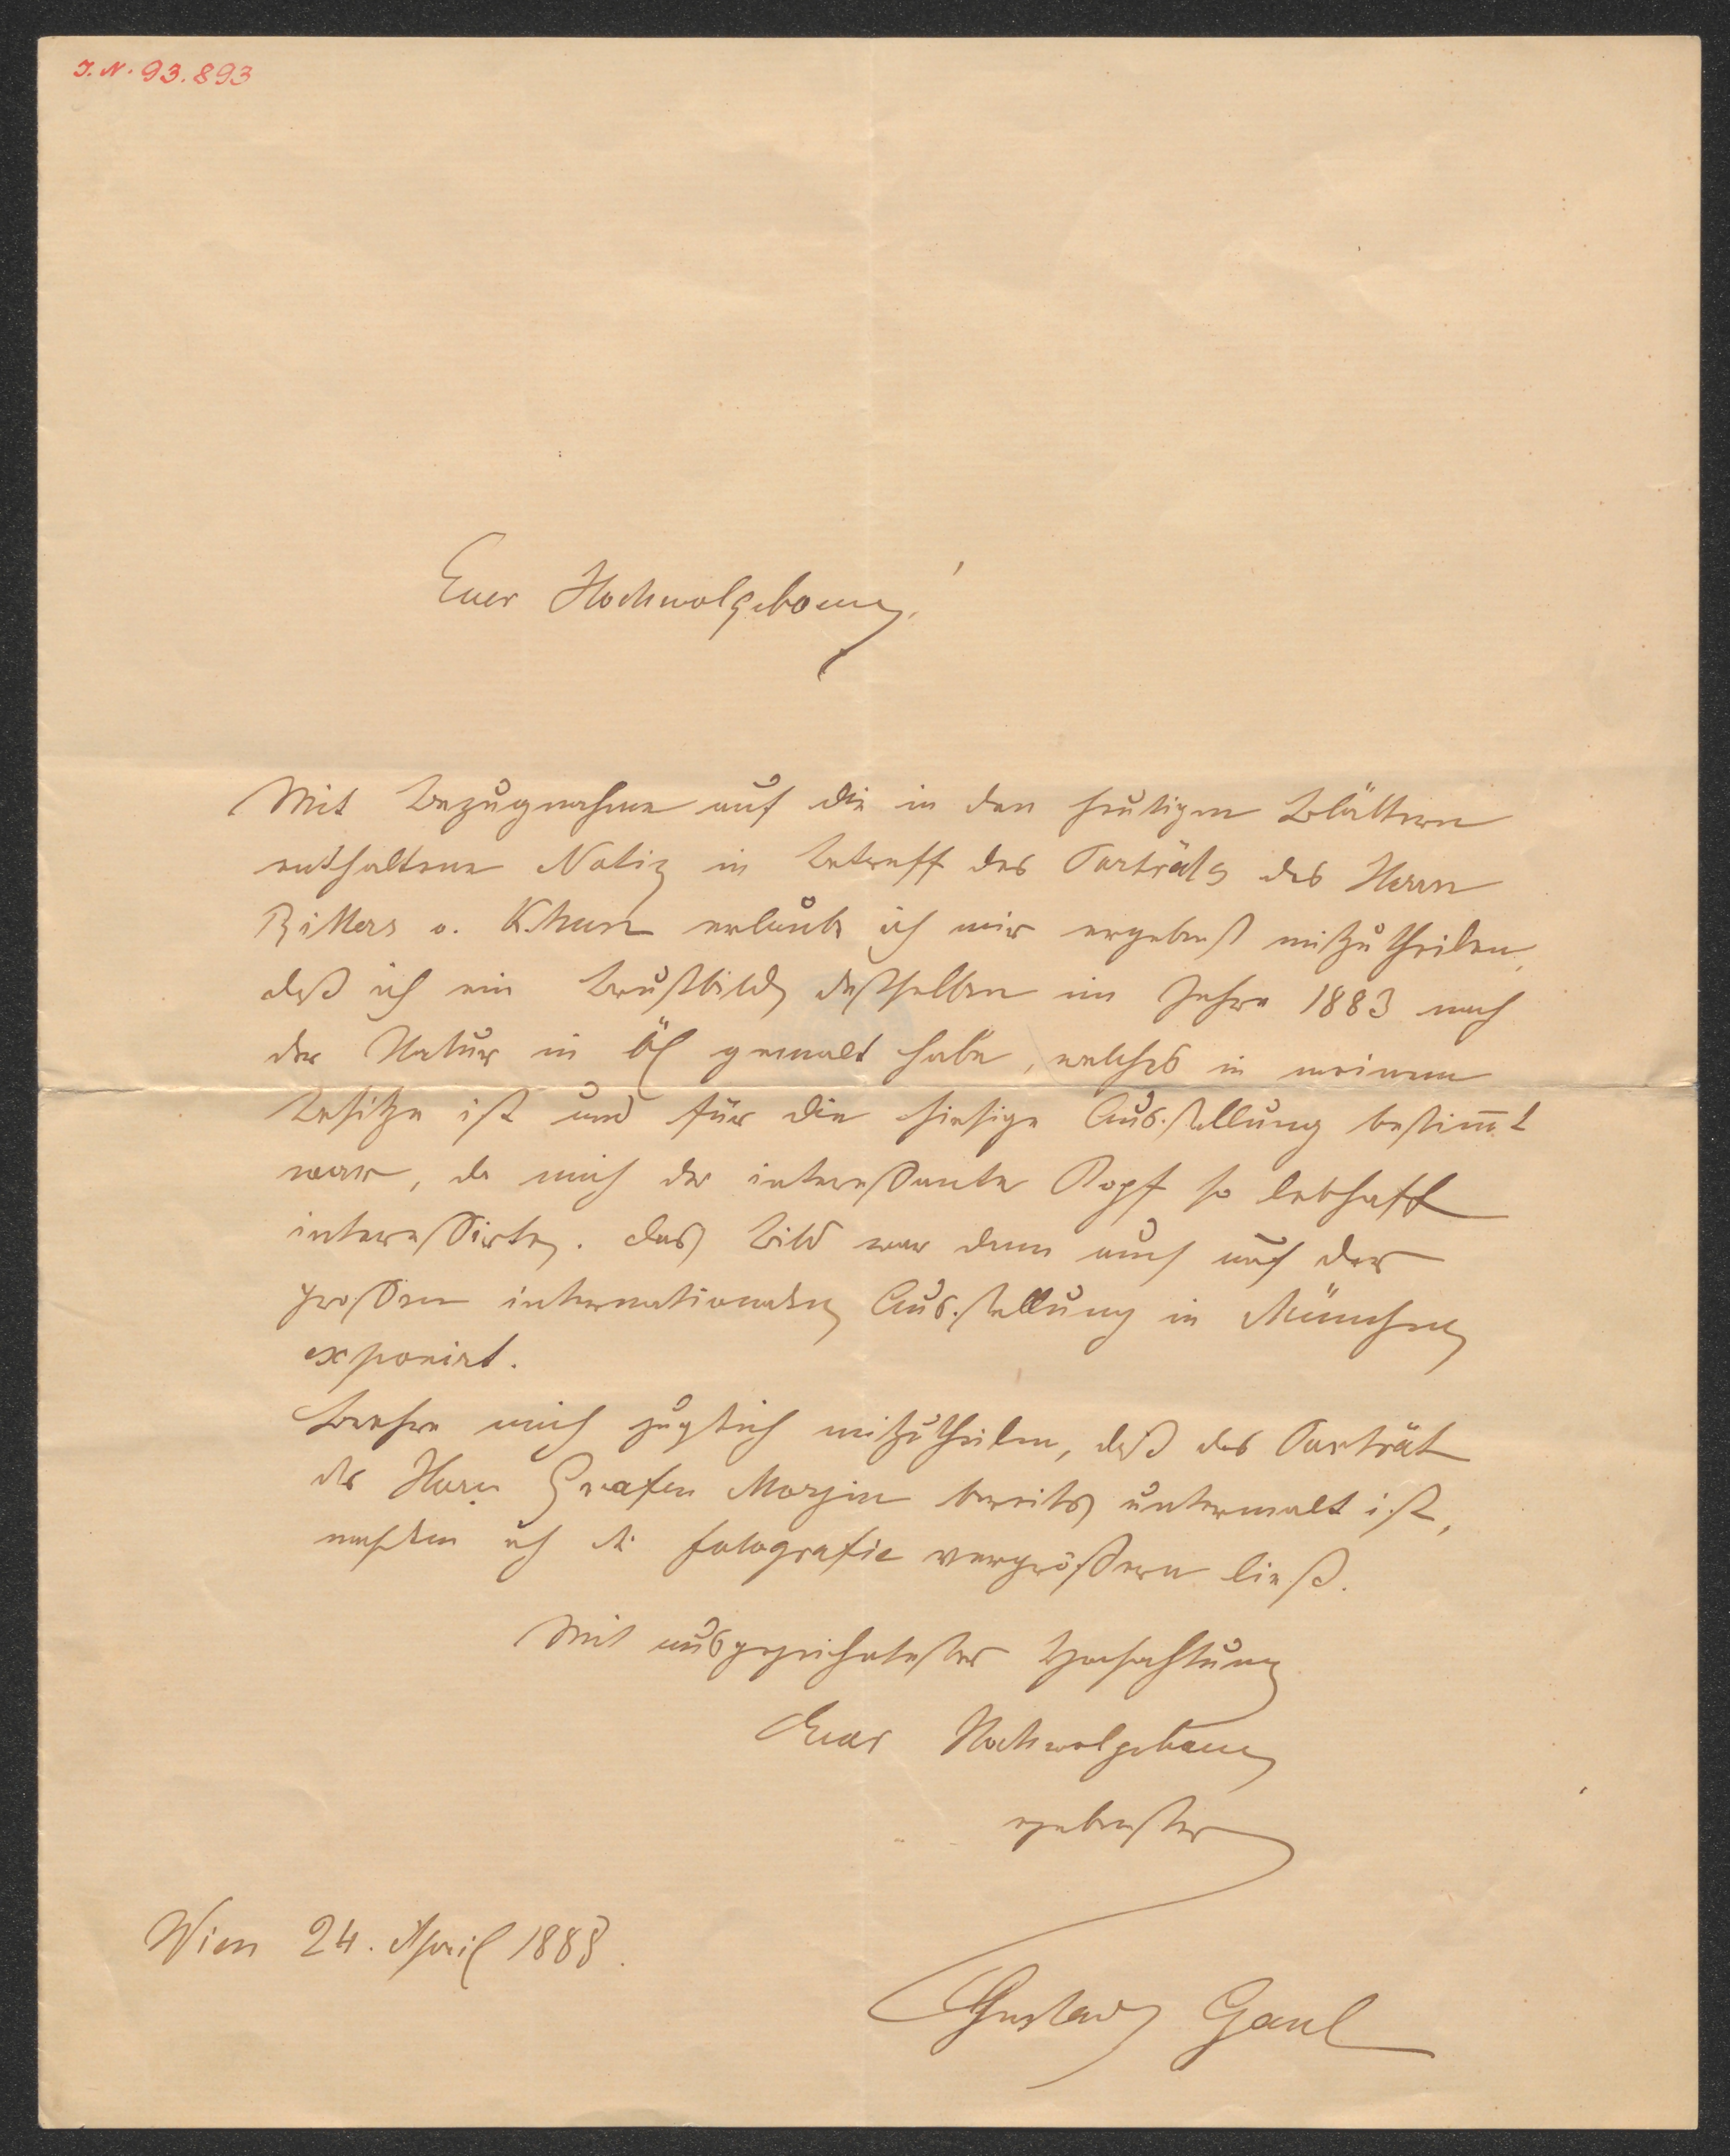 I. N. 93.893
Euer Hochwolgeboren!
Mit Bezugnahme auf die in den heutigen Blättern
enthaltene Notiz in Betreff des Porträts des Herrn
Ritters v. Khun erlaube ich mir ergebenst mitzutheilen,
daß ich ein Brustbild desselben im Jahre 1883 nach
der Natur in Öl gemalt habe, welches in meinem
Besitze ist und für die hiesige Ausstellung bestim̅t
war, da mich der interessante Kopf so lebhaft
interessirte. Das Bild war dann auch auf der
großen internationalen Ausstellung in München
exponirt.
Beehre mich zugleich mitzutheilen, daß das Porträt
des Herrn Grafen Morzin bereits untermalt ist,
nachdem ich die Fotografie vergrößern ließ.
Mit ausgezeichnetster Hochachtung
Euer Hochwolgeboren
ergebenster
Wien 24. April 1888.
Gustav Gaul